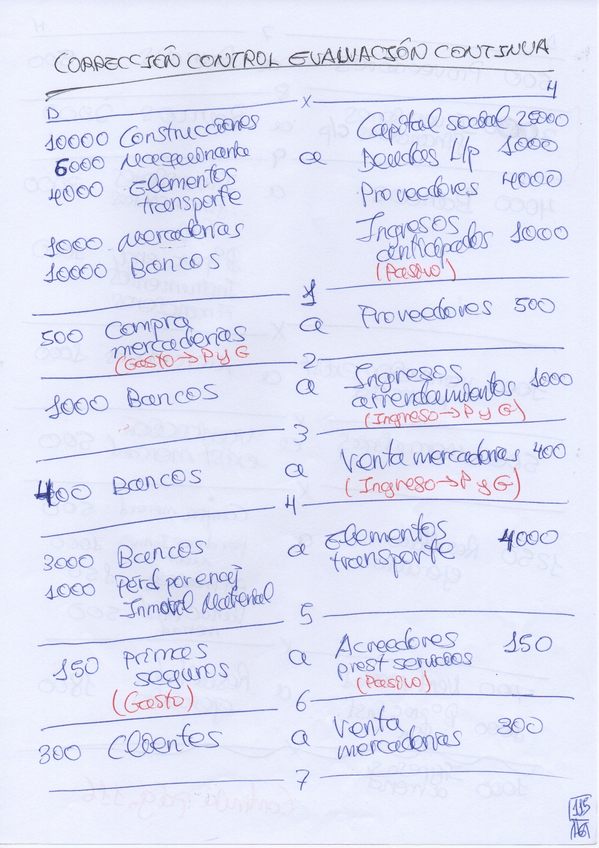 CORRECCIÓN CONTROL EVALUACIÓN CONTINUA
D x H
10000 Construcciones Capital social 25000
6000 Maquinaria a Deudas L/p 1000
4000 Elementos
transporte Proveedores 4000
1000 mercaderías Ingresos
anticipados 1000
10000 Bancos (Pasivo)
1
500 Compra a Proveedores 500
mercaderías
(Gasto→PyG
2
1000 Bancos a Ingresos
arrendamientos 1000
(Ingreso→PyG)
3
400 Bancos a Venta mercaderías 400
(Ingreso→PyG)
4
3000 Bancos a Elementos 4000
transporte
1000 Pérd por enaj
Inmovil Material
5
150 Primas a Acreedores 150
seguros prest servicios
(Gasto) (Pasivo)
6
300 Clientes a Venta 300
mercaderías
7
115